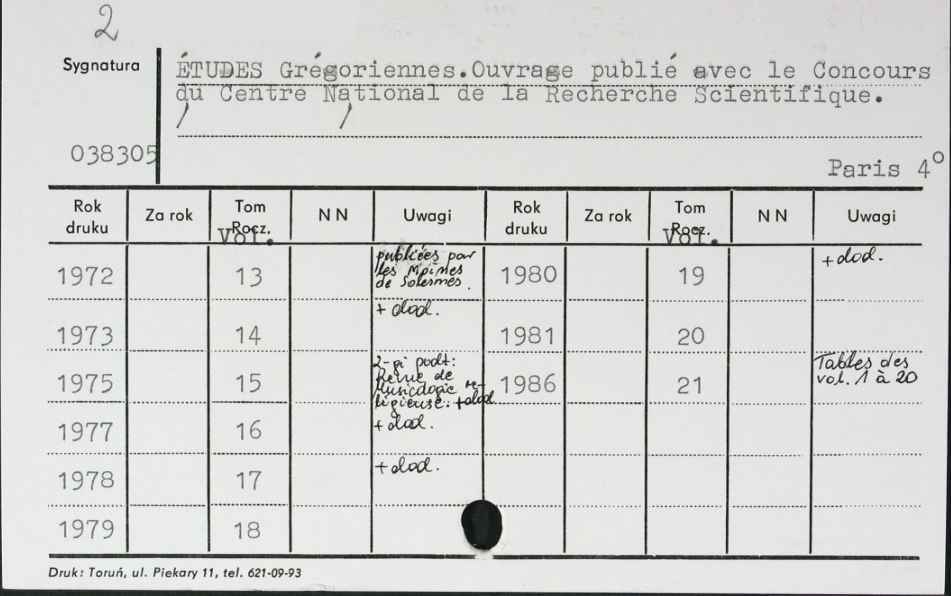 2
Sygnatura
ÉTUDES Grégoriennes.Ouvrage publié avec le Concours
du Centre National de la Recherche Scientifique.
038305
Paris 4°
Rok druku Za rok Tom Rocz. Vol. N N Uwagi Rok druku Za rok Tom Rocz. Vol. N N Uwagi
1972 13 publiées par les Moines de Solesmes. 1980 19 + dod.
1973 14 + dod. 1981 20
1975 15 2-gi podt: Revue de Musicologie religieuse. + dod 1986 21 Tables des vol. 1 à 20
1977 16 + dod.
1978 17 + dod.
1979 18
Druk: Toruń, ul. Piekary 11, tel. 621-09-93